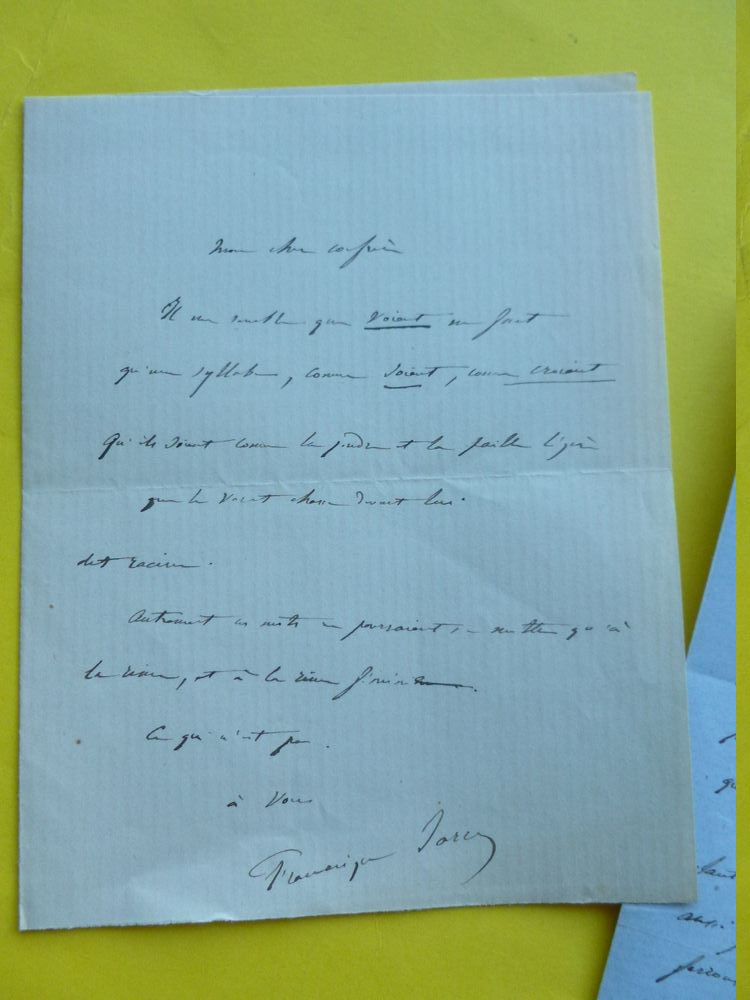 Mon cher confrère
Il me semble que voient ne font
qu'une syllabe, comme soient, comme croient
Qu'ils soient comme la poudre et la paille légère
que le vent chasse devant lui.
dit Racine.
Autrement ces mots ne pourraient se mettre qu'à
la rime, et à la rime féminine.
Ce qui n'est pas.
à vous
Francisque Sarcey
qu
aussi